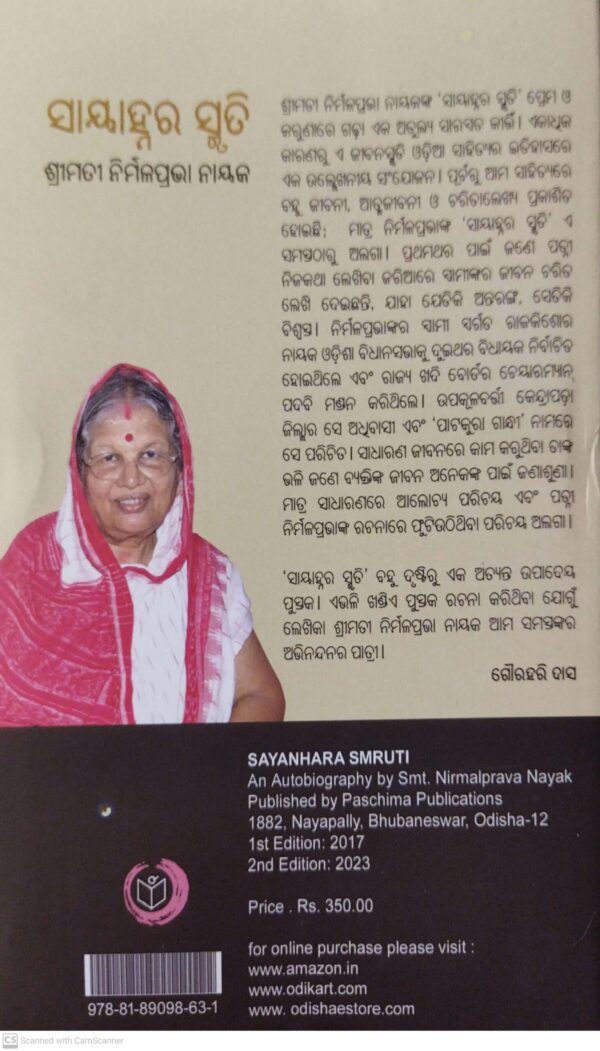 ସାୟାହ୍ନର ସ୍ମୃତି
ଶ୍ରୀମତୀ ନିର୍ମଳପ୍ରଭା ନାୟକ
ଶ୍ରୀମତୀ ନିର୍ମଳପ୍ରଭା ନାୟକଙ୍କ ‘ସାୟାହ୍ନର ସ୍ମୃତି’ ପ୍ରେମ ଓ
କରୁଣାରେ ଗଢ଼ା ଏକ ଅତୁଲ୍ୟ ସାରସ୍ବତ କୀର୍ତ୍ତି। ଏକାଧିକ
କାରଣରୁ ଏ ଜୀବନସ୍ମୃତି ଓଡ଼ିଆ ସାହିତ୍ୟର ଇତିହାସରେ
ଏକ ଉଲ୍ଲେଖନୀୟ ସଂଯୋଜନ। ପୂର୍ବରୁ ଆମ ସାହିତ୍ୟରେ
ବହୁ ଜୀବନୀ, ଆତ୍ମଜୀବନୀ ଓ ଚରିତାଲେଖ୍ୟ ପ୍ରକାଶିତ
ହୋଇଛି; ମାତ୍ର ନିର୍ମଳପ୍ରଭାଙ୍କ ‘ସାୟାହ୍ନର ସ୍ମୃତି’ ଏ
ସମସ୍ତଠାରୁ ଅଲଗା। ପ୍ରଥମଥର ପାଇଁ ଜଣେ ପତ୍ନୀ
ନିଜକଥା ଲେଖିବା ଜରିଆରେ ସ୍ୱାମୀଙ୍କର ଜୀବନ ଚରିତ
ଲେଖି ଦେଇଛନ୍ତି, ଯାହା ଯେତିକି ଅନ୍ତରଙ୍ଗ, ସେତିକି
ବିଶ୍ୱସ୍ତ। ନିର୍ମଳପ୍ରଭାଙ୍କର ସ୍ୱାମୀ ସ୍ୱର୍ଗତ ରାଜକିଶୋର
ନାୟକ ଓଡ଼ିଶା ବିଧାନସଭାକୁ ଦୁଇଥର ବିଧାୟକ ନିର୍ବାଚିତ
ହୋଇଥିଲେ ଏବଂ ରାଜ୍ୟ ଖଦି ବୋର୍ଡର ଚେୟାରମ୍ୟାନ୍
ପଦବି ମଣ୍ଡନ କରିଥିଲେ। ଉପକୂଳବର୍ତ୍ତୀ କେନ୍ଦ୍ରାପଡ଼ା
ଜିଲ୍ଲାର ସେ ଅଧିବାସୀ ଏବଂ ‘ପାଟକୁରା ଗାନ୍ଧୀ’ ନାମରେ
ସେ ପରିଚିତ। ସାଧାରଣ ଜୀବନରେ କାମ କରୁଥିବା ତାଙ୍କ
ଭଳି ଜଣେ ବ୍ୟକ୍ତିଙ୍କ ଜୀବନ ଅନେକଙ୍କ ପାଇଁ ଜଣାଶୁଣା।
ମାତ୍ର ସାଧାରଣରେ ଆଲୋଚ୍ୟ ପରିଚୟ ଏବଂ ପତ୍ନୀ
ନିର୍ମଳପ୍ରଭାଙ୍କ ରଚନାରେ ଫୁଟିଉଠିଥିବା ପରିଚୟ ଅଲଗା।
‘ସାୟାହ୍ନର ସ୍ମୃତି’ ବହୁ ଦୃଷ୍ଟିରୁ ଏକ ଅତ୍ୟନ୍ତ ଉପାଦେୟ
ପୁସ୍ତକ। ଏଭଳି ଖଣ୍ଡିଏ ପୁସ୍ତକ ରଚନା କରିଥିବା ଯୋଗୁଁ
ଲେଖିକା ଶ୍ରୀମତୀ ନିର୍ମଳପ୍ରଭା ନାୟକ ଆମ ସମସ୍ତଙ୍କର
ଅଭିନନ୍ଦନର ପାତ୍ରୀ।
ଗୌରହରି ଦାସ
SAYANHARA SMRUTI
An Autobiography by Smt. Nirmalprava Nayak
Published by Paschima Publications
1882, Nayapally, Bhubaneswar, Odisha-12
1st Edition: 2017
2nd Edition: 2023
Price . Rs. 350.00
for online purchase please visit :
www.amazon.in
www.odikart.com
www. odishaestore.com
978-81-89098-63-1
CS Scanned with CamScanner